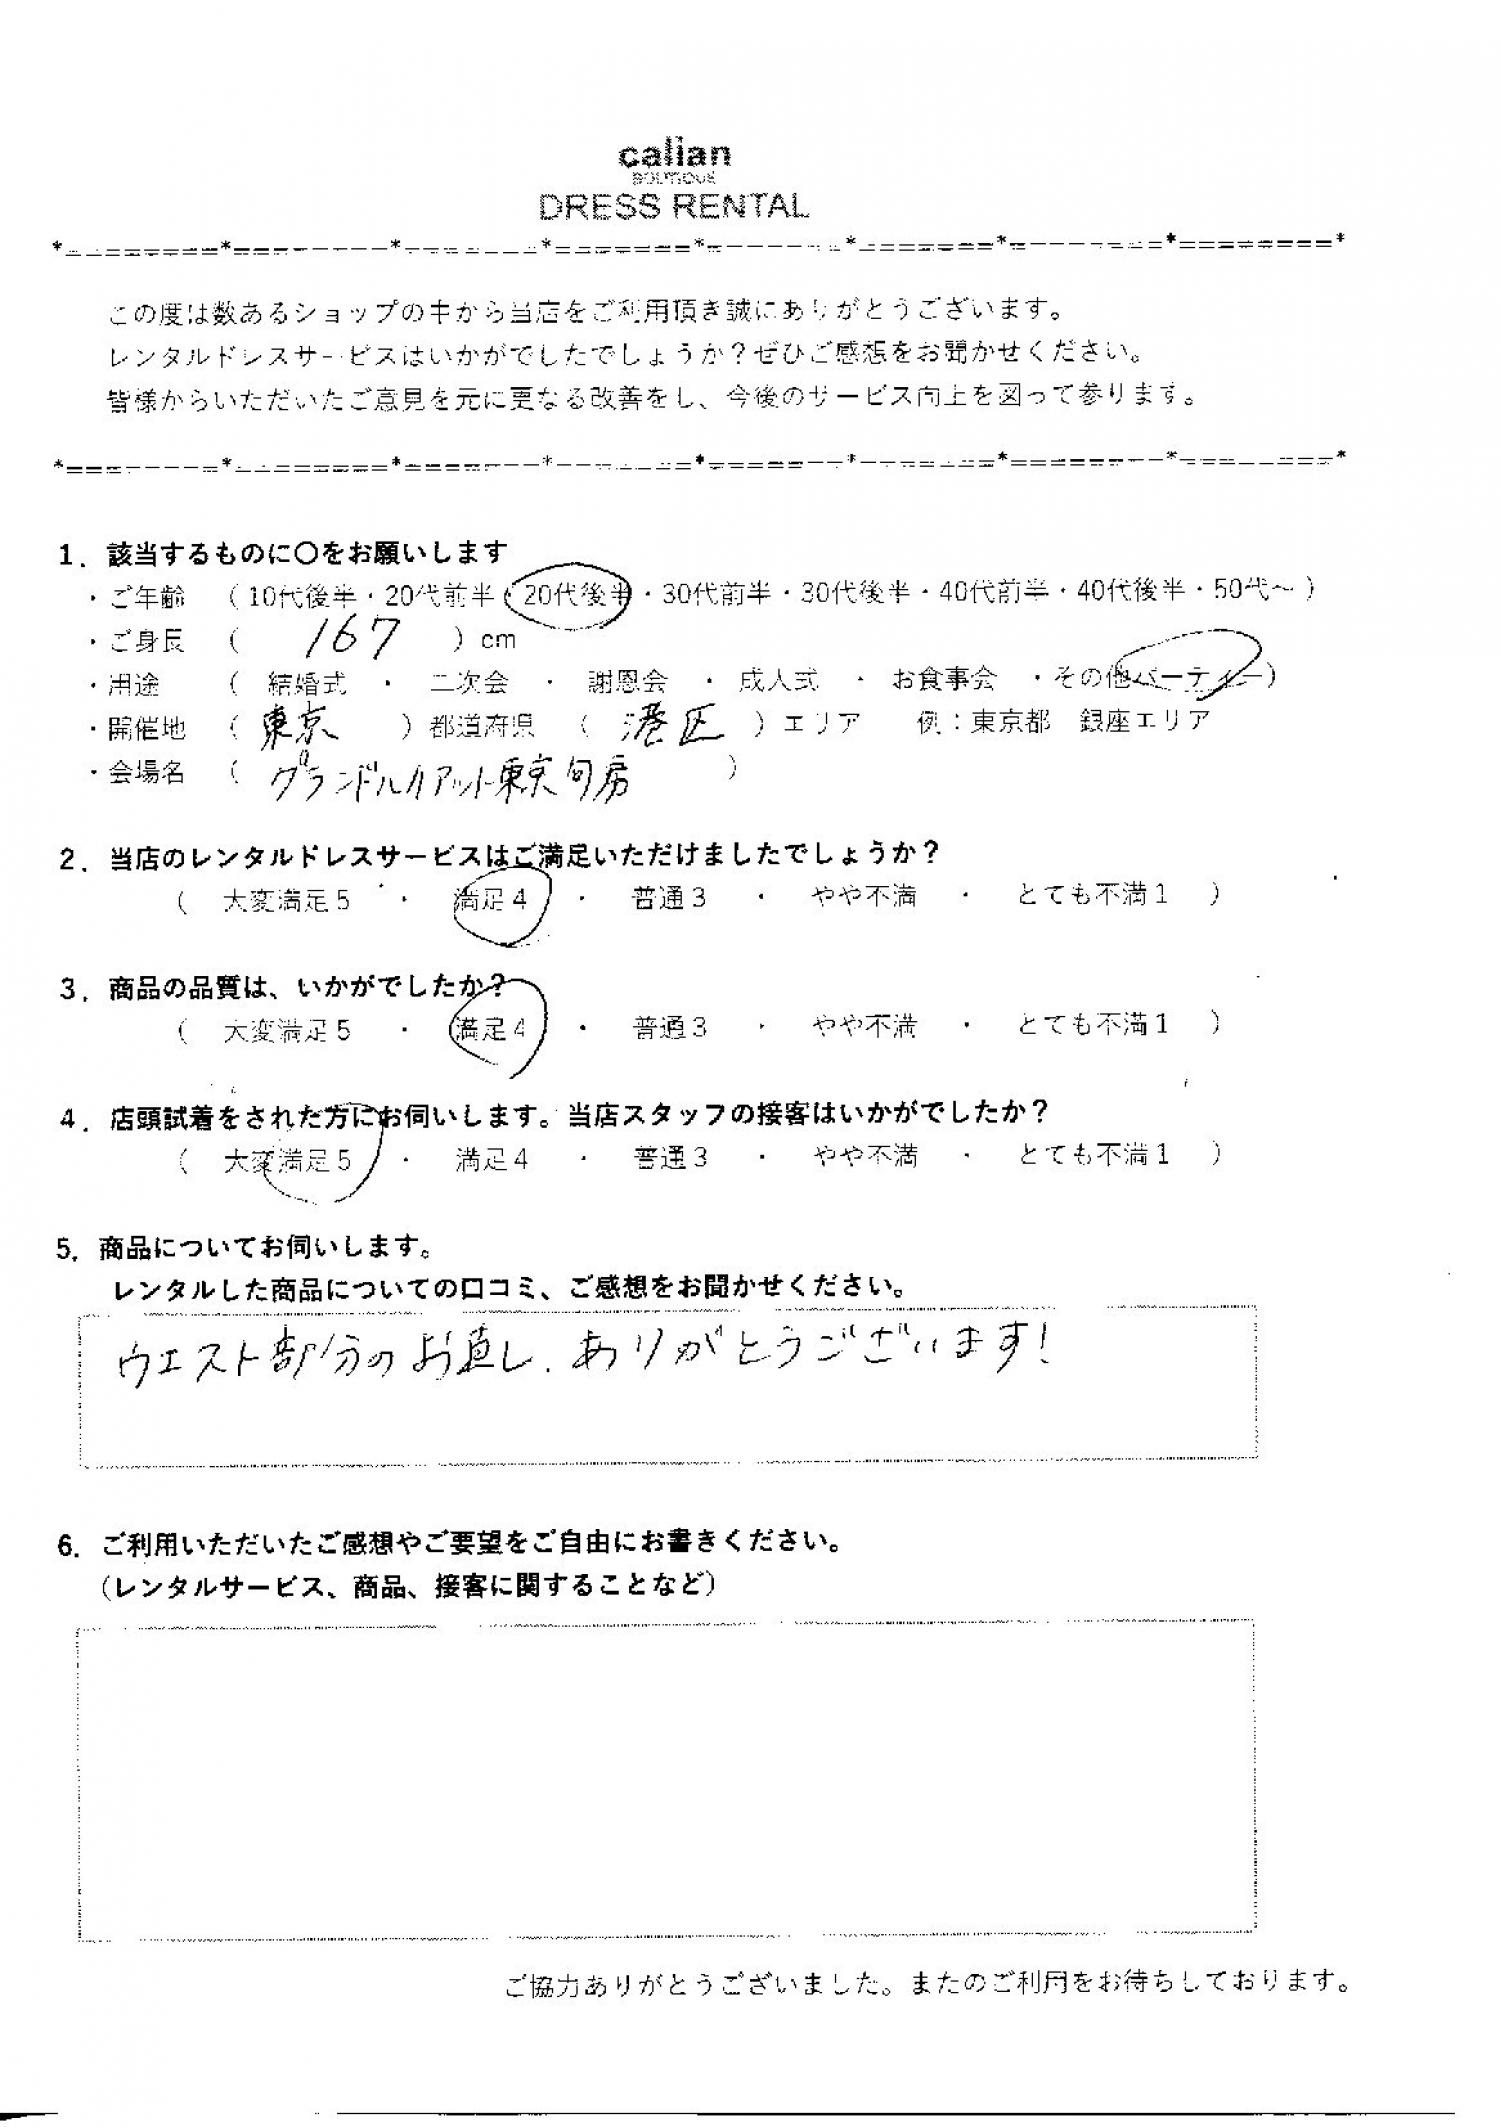 calian
BOUTIQUE
DRESS RENTAL
この度は数あるショップの中から当店をご利用頂き誠にありがとうございます。
レンタルドレスサービスはいかがでしたでしょうか？ぜひご感想をお聞かせください。
皆様からいただいたご意見を元に更なる改善をし、今後のサービス向上を図って参ります。
1．該当するものに〇をお願いします
・ご年齢　（ 10代後半・20代前半・20代後半・30代前半・30代後半・40代前半・40代後半・50代～ ）
・ご身長　（　167　）cm
・用途　（　結婚式　・　二次会　・　謝恩会　・　成人式　・　お食事会　・その他パーティー）
・開催地　（　東京　）都道府県　（　港区　）エリア　例：東京都　銀座エリア
・会場名　（　グランドハイアット東京　）
2．当店のレンタルドレスサービスはご満足いただけましたでしょうか？
（　大変満足５　・　満足４　・　普通３　・　やや不満　・　とても不満１　）
3．商品の品質は、いかがでしたか？
（　大変満足５　・　満足４　・　普通３　・　やや不満　・　とても不満１　）
4．店頭試着をされた方にお伺いします。当店スタッフの接客はいかがでしたか？
（　大変満足５　・　満足４　・　普通３　・　やや不満　・　とても不満１　）
5．商品についてお伺いします。
レンタルした商品についての口コミ、ご感想をお聞かせください。
ウエスト部分のお直し、ありがとうございます！
6．ご利用いただいたご感想やご要望をご自由にお書きください。
（レンタルサービス、商品、接客に関することなど）
ご協力ありがとうございました。またのご利用をお待ちしております。